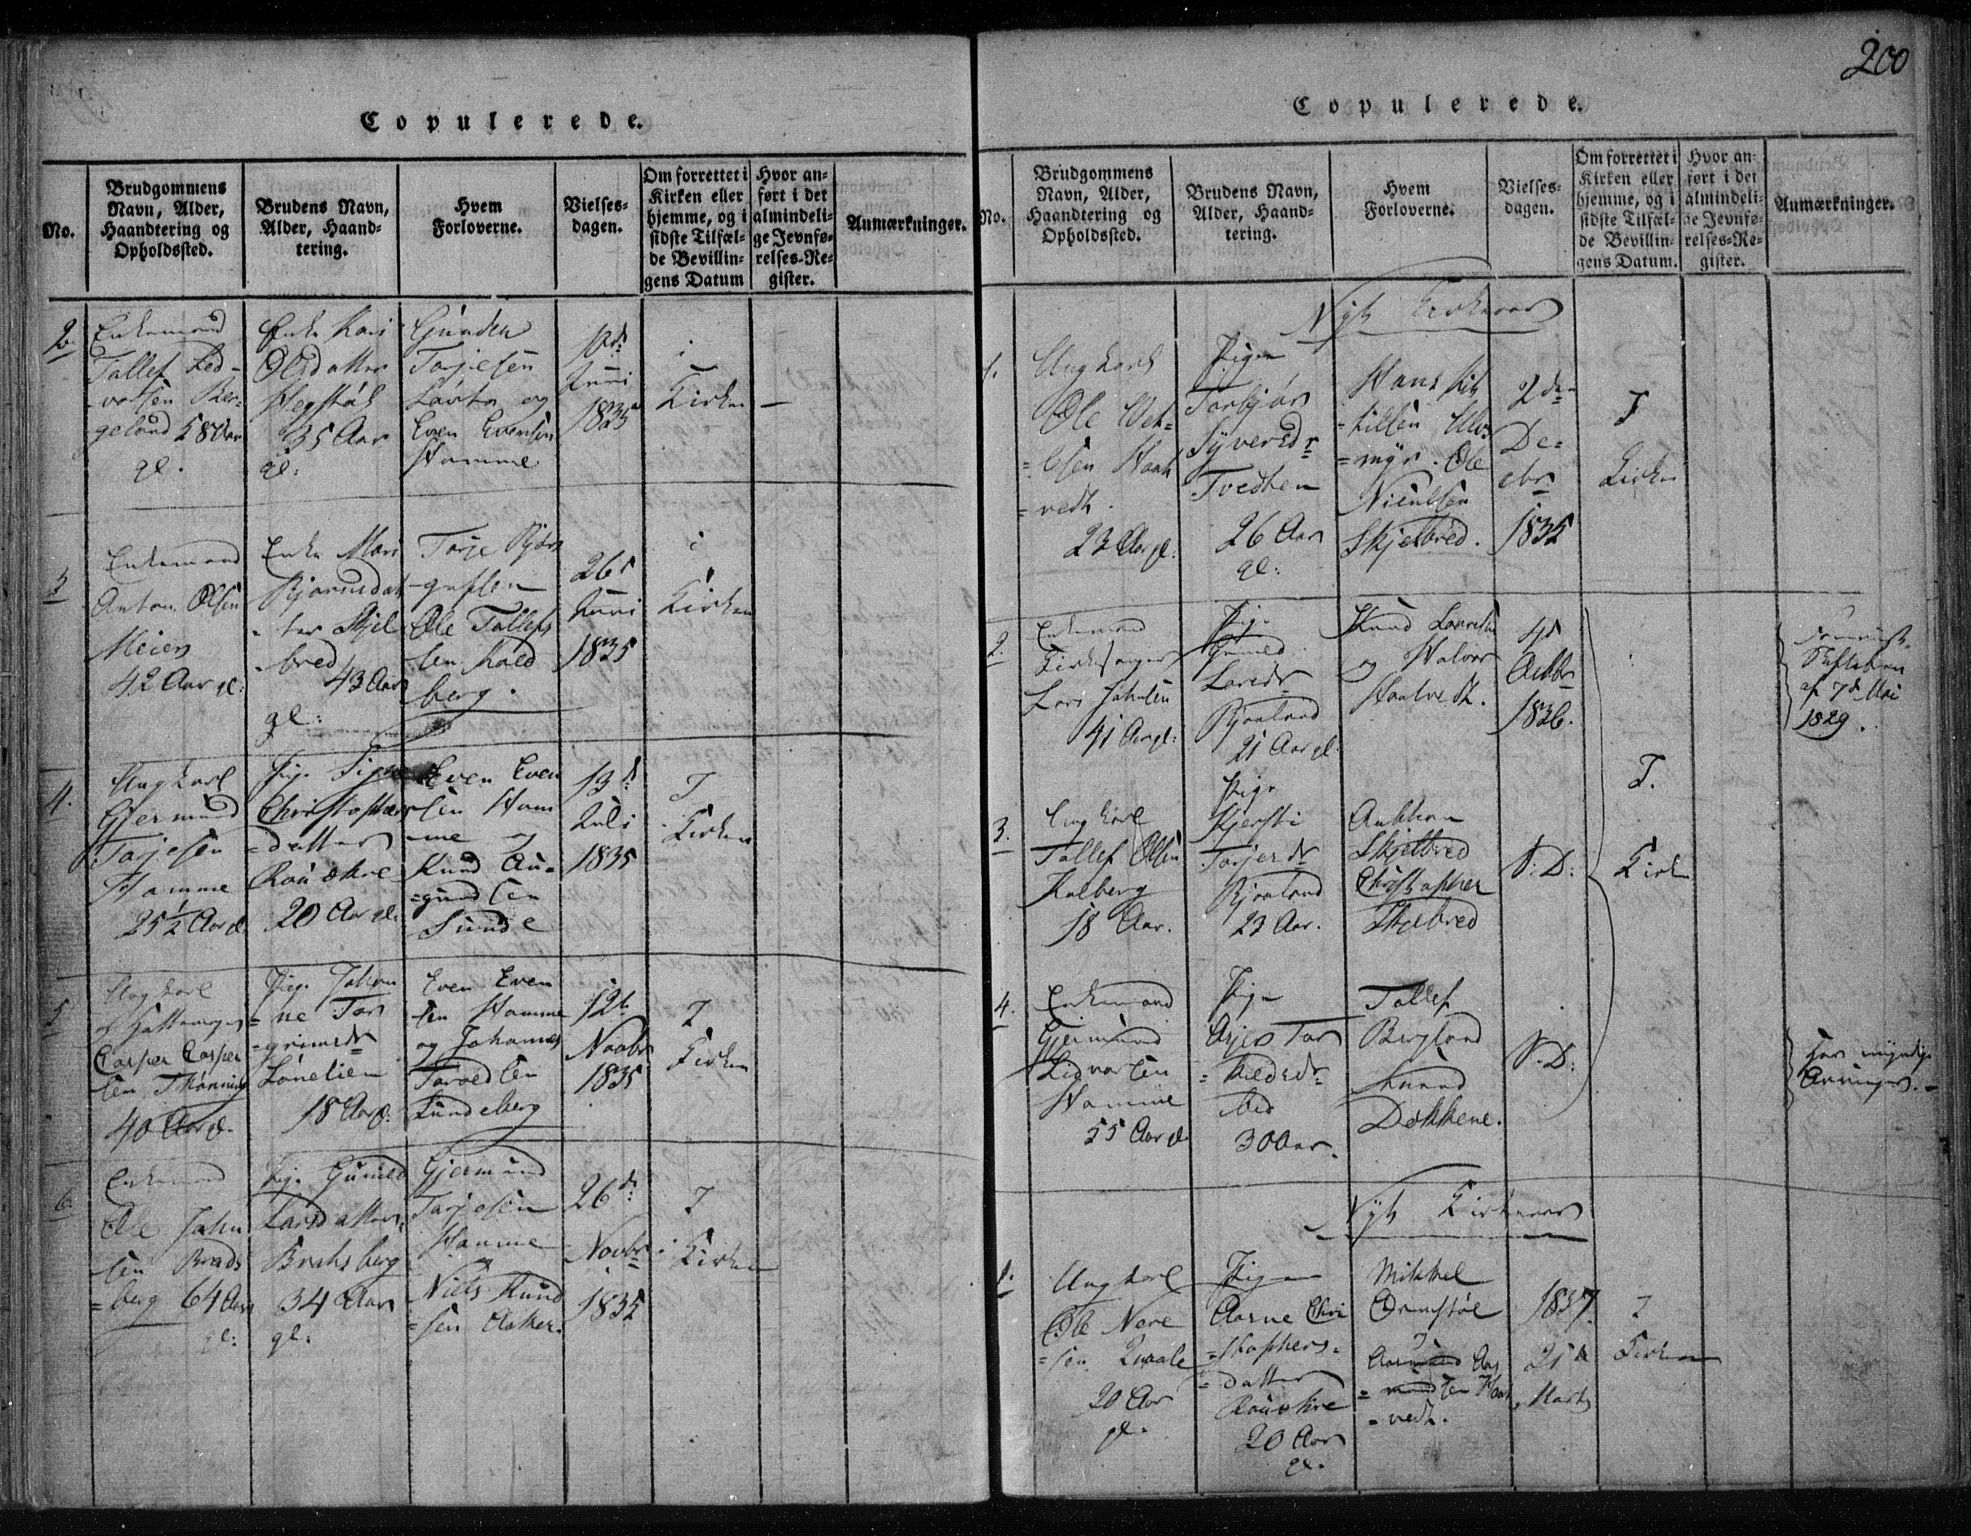 200
Copulerede.
No.
Brudgommens
Navn, Alder,
Haandtering og
Opholdssted.
Brudens Navn,
Alder, Haand-
tering.
Hvem
Forloverne.
Vielses-
dagen.
Om forrettet i
Kirken eller
hjemme, og i
sidste Tilfæl-
de Bevillin-
gens Datum
Hvor an-
ført i det
almindeli-
ge Jevnfø-
relses-Re-
gister.
Anmærkninger.
2.
Enkemand
Tallef Led-
vorsen Ber-
geland 58 Aar
gl.
Enke Kari
Olsdatter
Hegstøl
35 Aar
gl:
Gunder
Torjesen
og
Even Evensen
Homme
10de
Juni
1835
i
Kirken
—
3
Enkemand
Anton Olsen
Meier
42 Aar gl:
Enke Mari
Bjørnsdat
-ter Skjel
-bred
43 Aar
gl:
Torje Bjørn
Ole Tallefs
sen Kold
berg.
26d
Juni
1835
i
Kirken
4.
Ungkarl
Gjermund
Torjesen
Homme
25½ Aar gl.
Pige Signe
Christophers
-datter
Rouokre
20 Aar gl.
Even Even
sen Hom
-me og
Knud Au-
-gundsen
Sunde
13d
Juli
1835
I
Kirken
5
Ungkarl
Casper Casper
sen
40 Aar gl.
Pige Johan
-ne Tor
-grimsdr
18 Aar gl.
Even Even
sen Homme
og Johannes
Torvedsen
Lundeberg
12t
Novbr
1835
I
Kirken
6.
Enkemand
Ole John
sen Brads
-berg 64 Aar
gl:
Pige Gunild
Larsdatter
Bratsberg
34 Aar
gl:
Gjermund
Torjesen
Homme
Niels Knud
-sen Aaker.
26d:
Novbr
1835
I
Kirken
Copulerede.
No.
Brudgommens
Navn, Alder,
Haandtering og
Opholdssted.
Brudens Navn,
Alder, Haand-
tering.
Hvem
Forloverne.
Vielses-
dagen.
Om forrettet i
Kirken eller
hjemme, og i
sidste Tilfæl-
de Bevillin-
gens Datum.
Hvor an-
ført i det
almindeli-
ge Jevnfø-
relses-Re-
gister.
Anmærkninger.
Nyt Kirkeaar
1.
Ungkarl
Ole Vet-
=lesen Haat
-vedt.
23 Aar gl:
Pige
Torbjør
Syversdr
Tvedten
26 Aar
gl:
Hans Kit
-tilsen
-myr. Ole
Nieulsen
Skjelbred.
2de
De-
cbr
1835
I
Kirken
2.
Enkemand
Kirkesanger
Lars Johnsen
41 Aar gl:
Pige
Gunild
Larsdr
Bjoaland
21 Aar gl.
Knud Lauvetn
og Halvor
Haatvedt.
4d
Octbr
1836.
af 7d Mai
1829.
3.
Ungkarl
Tallef Olsen
Kalberg
18 Aar.
Pige
Kjersti
Torjersdr
Bjoaland
23 Aar.
Anthon
Skjelbred
Christopher
Skjelbred
S. D:
I.
Kirken
4.
Enkemand
Gjermund
Lidvorsen
Homme
55 Aar gl.
Pige
Tor
-kildsdr
30 Aar.
Tallef
Bergland
Knud
Dokkene.
S. D:
Nyt Kirkeaar
1.
Ungkarl
Ole Nere
-sen Qvaale
20 Aar
gl.
Pige
Aasne Chri
-stophers-
-datter
Rouokre
20 Aar
gl.
Mikkel
Ormstøl
Aasmund Aas
=mundsen Haat
-vedt.
1837.
25d
Marts
I
Kirken